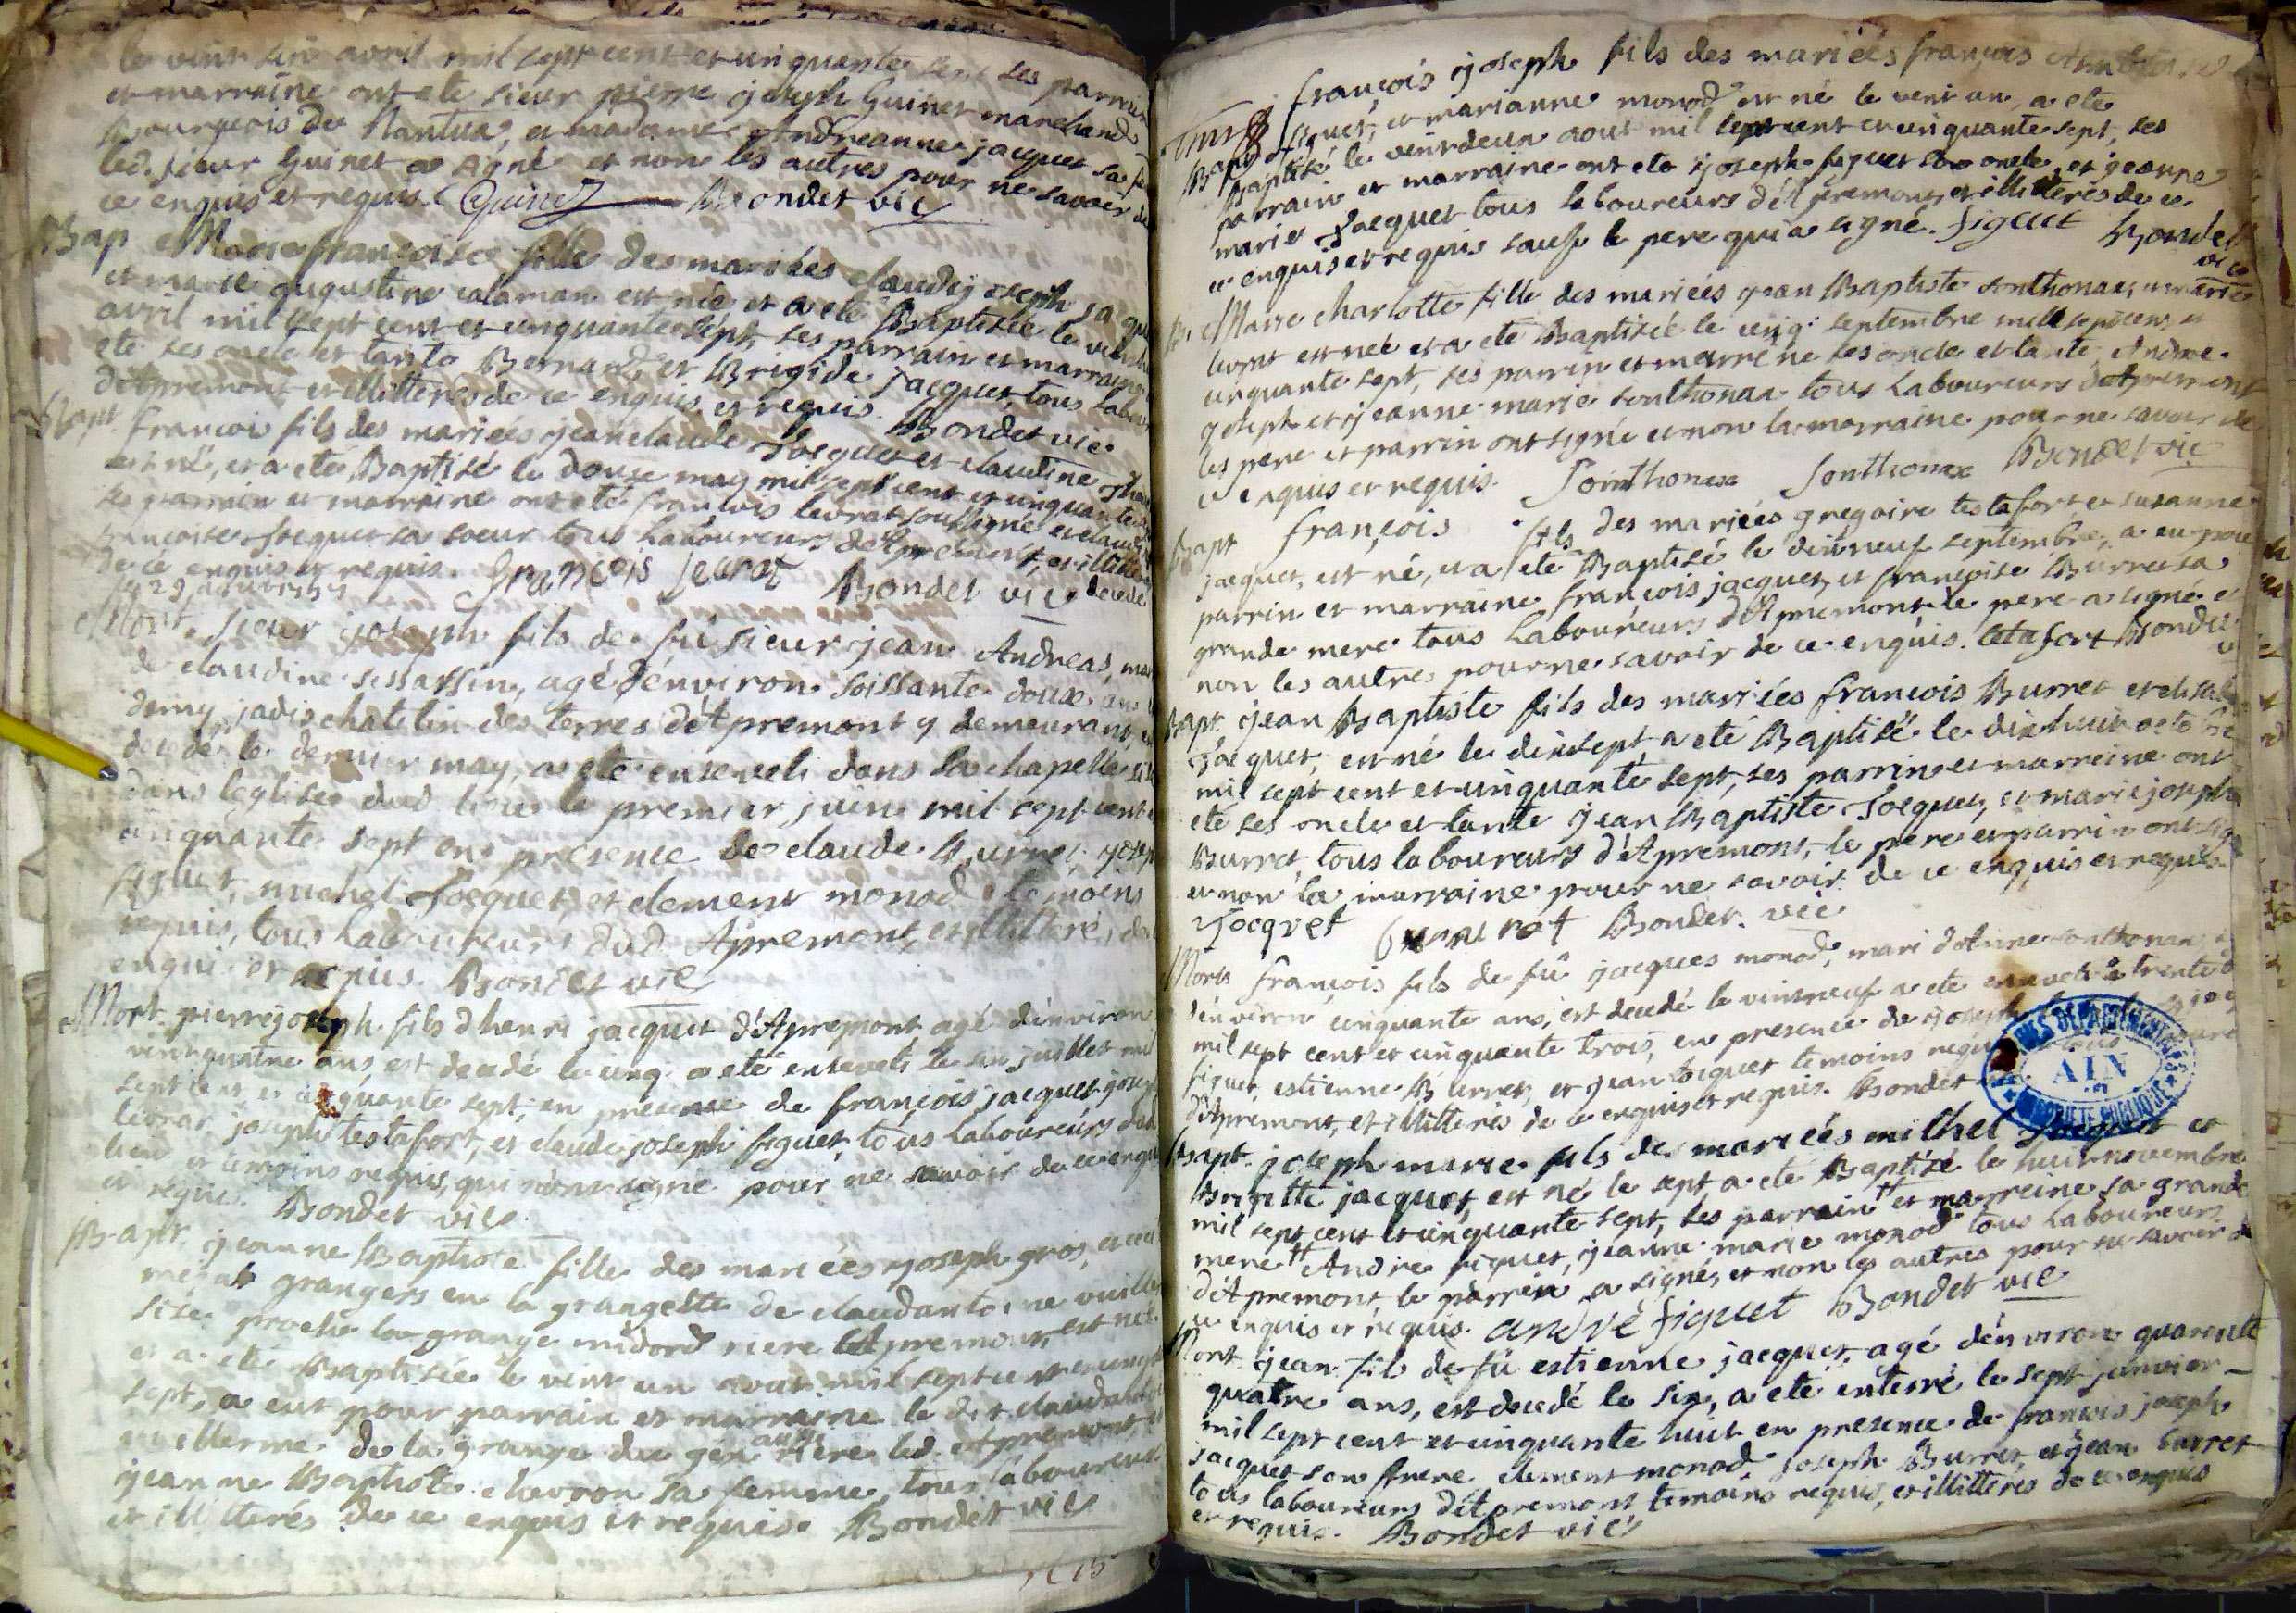 le vint six avril mil sept cent et cinquante sept ses parrain
et marraine ont ete sieur pierre joseph Guinet marchand
Bourgeois de Nantua, et madame Andreanne jacquet sa
led. sieur Guinet a signé et non les autres pour ne savoir de
ce enquis et requis. Guinet Bondet vic
Bap Marie françoise fille des mariées claude joseph
et marie gugustine calaman est née et a ete Baptisée le vint
avril mil sept cent et cinquante sept, ses parrain et marraine
ete ses oncle et tante Bernard, et Brigide jacquet, tous labou
d'Apremont et illitterés de ce enquis et requis. Bondet vic
Bapt. François fils des mariées jean claude Jocquet et claudine
est né, et a eté Baptisé le douse may mil sept cent et cinquante
ses parrain et marraine ont eté françois levrat soussigné et claud
françoise Jocquet sa soeur tous Laboureurs d'Apremont, et illitter
de ce enquis et requis. François levrat Bondet vic decedé
le 29
Mort. Sieur joseph fils de fû sieur jean Andreas, mari
de claudine sessassin, agé d'environ soissante doux ans
demy, jadis chatelin des terres d'Apremont y demeurant,
decedé le dernier may, a eté enseveli dans la chapelle
dans leglise dud lieu le premier juin mil sept cent
cinquante sept en presence de claude Burret, josep
figuet, michel Jocquet, et clement monod temoins
requis, tous Laboureurs dud Apremont, et illitterés de
enquis et requis. Bondet vic
Mort. pierre joseph fils dhenri jacquet d'Apremont agé d'environ
vint quatre ans, est decedé le cinq a eté enseveli le six juillet mil
sept cent et cinquante sept, en presence de françois jacquet joseph
levrat, joseph testafort, et claude joseph figuet, tous Laboureurs dud
lieu et temoins requis, qui n'ont signé pour ne savoir de ce enquis
et requis. Bondet vic
Bapt. jeanne Baptiste fille des mariées joseph gros, et
grangers en la grangette de claudantoine vuille
size proche la grange midord riere Apremont, est née
et a eté Baptisée le vint un aout mil sept cent et cinq
sept, a eut pour parrain et marraine le dit claudanto
vuillerme de la grange du gex aussi riere led. Apremont, et
jeanne Baptiste chevron sa femme, tous laboureurs
et illitterés de ce enquis et requis. Bondet vic
françois joseph fils des mariées françois
Bapt figuet, et marianne monod est né le vint un, a ete
Baptisé le vint deux aout mil sept cent et cinquante sept, ses
parrain et marraine ont ete joseph figuet son oncle, et jeanne
marie Jacquet tous laboureurs d'Apremont, et illitterés de ce
ce enquis et requis sauf le pere qui a signé. figuet Bondet
vic
Marie charlotte fille des mariées jean Baptiste sonthonax, et marie
levrat est née et a eté Baptisée le cinq septembre mil sept cent et
cinquante sept, ses parrin et marréne ses oncle et tante Andre
joseph et jeanne marie sonthonax tous Laboureurs d'Apremont
les pere et parrin ont signé et non la marraine pour ne savoir de
ce enquis et requis. Sonthonax Sonthonax Bondet vic
Bapt François fils des mariées gregoire testafort, et susanne
jacquet, est né, et a eté Baptisé le dix neuf septembre, a eu pour
parrin et marraine françois jacquet, et françoise Burret sa
grande mere tous Laboureurs d'Apremont le pere a signé et
non les autres pour ne savoir de ce enquis. testafort Bondet
Bapt. jean Baptiste fils des mariées françois Burret et elisab
Jacquet, est né le dix sept a eté Baptisé le dix huit octobre
mil sept cent et cinquante sept, ses parrin et marreine ont
eté ses oncle et tante jean Baptiste Jocquet, et marie joseph
Burret, tous laboureurs d'Apremont, le pere et parrin ont signé
et non la marraine pour ne savoir de ce enquis et requis.
Jocquet Bondet. vic
Mort françois fils de fû jacques monod, mari d'Anne sonthonax,
d'environ cinquante ans, est decedé le vint neuf a ete enseveli le trente
mil sept cent et cinquante trois, en presence de joseph
figuet, estienne Burret, et jean Jocquet temoins requ
d'Apremont, et illitterés de ce enquis et requis. Bondet
ARCHIVES DEPARTEMENTALES
AIN
PROPRIETE PUBLIQUE
Bapt. joseph marie fils de mariées michel Jocquet et
jacquet, est né le sept, a eté Baptisé le huit novembre
mil sept cent et cinquante sept, ses parrain et marreine sa grande
mere Andre figuet, jeanne marie monod tous Laboureurs
d'Apremont, le parrin a signé, et non les autres pour ne savoir de
ce enquis et requis. andré figuet Bondet vic
Mort. jean fils de fû estienne jacquet, agé d'environ quarente
quatre ans, est decedé le six, a eté enterré le sept janvier
mil sept cent et cinquante huit en presence de francois joseph
jacquet son frere clement monod Joseph Burret, et jean burret
tous laboureurs d'Apremont temoins requis, et illitterés de ce enquis
et requis. Bondet vic